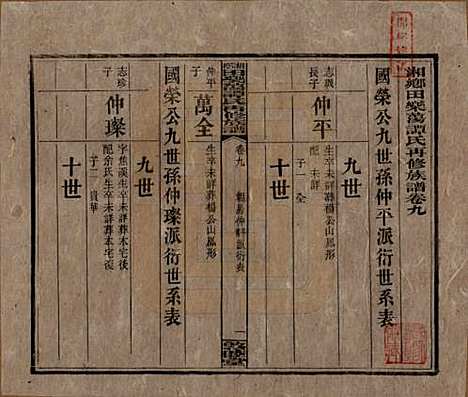 湘鄉田樂萬譚氏再修族譜卷九
國榮公九世孫仲平派衍世系表
九世
志璵長子
仲平
生卒未詳葬楊公山鳳形
配 未詳
子一 全
十世
卷九
一
敦睦堂
仲平子
萬全
生卒未詳葬楊公山鳳形
國榮公九世孫仲璨派衍世系表
九世
志珍子
仲璨
字焦溪生卒未詳葬本宅後
配余氏生卒未詳葬本宅後
子二 貴華
十世